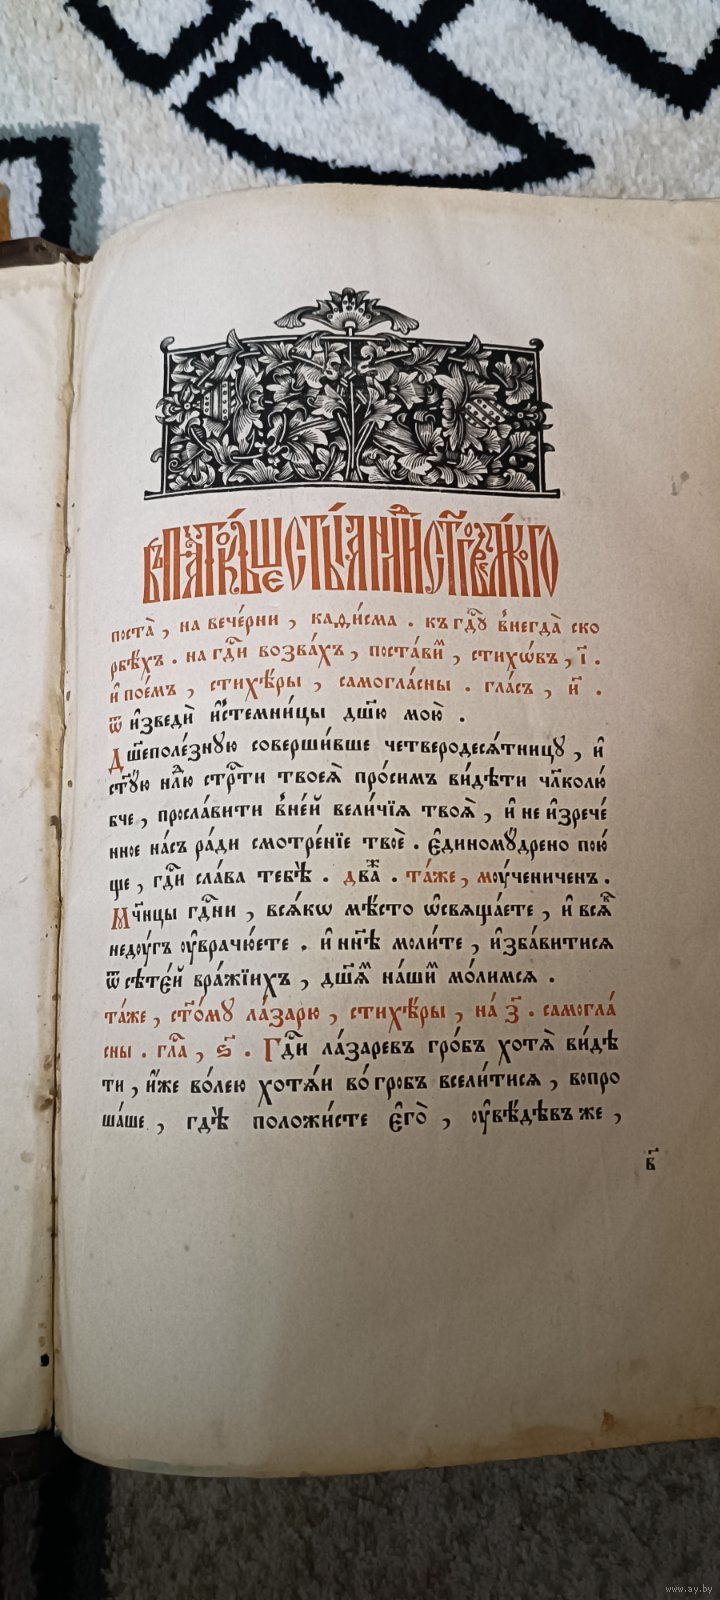 въ пѧто́къ шесты́ѧ недѣ́ли ст҃а́гѡ
поста̀, на вече́рни, каѳи́сма. къ гд҇ꙋ внегда̀ ско
рбѣ́хъ. на гд҇и возва́хъ, поста́виⷨ, стихѡ́въ, і҃.
и҆ пое́мъ, стихѣ́ры, самогла́сны. гла́съ, и҃.
ѿ и҆зведѝ и҆стемни́цы дш҃ꙋ мою̀.
Дш҃еполе́знꙋю соверши́вше четверодесѧ́тницꙋ, и҆
ст҃ꙋ́ю нлⷣю стрⷭ҇ти твоеѧ̀ про́симъ ви́дѣти чл҃колю́
бче, просла́вити вне́й вели́чїѧ твоѧ̀, и҆ не и҆зрече́
нное на́съ ра́ди смотре́нїе твоѐ. є҆диномꙋ́дрено пою́
ще, гд҇и сла́ва тебѣ̀. два́ⷤ. та́же, моученичен.
Мч҃нцы гд҇ни, всѧ́кѡ мѣ́сто ѡ҆свѧща́ете, и҆ всѧ́ⷦ
недо́угъ оу҆врачю́ете. и҆ нн҃ѣ моли́те, и҆зба́витисѧ
ѿ сѣте́й вра́жїихъ, дш҃а́ⷨ на́шиⷨ мо́лимсѧ.
та́же, ст҃о́мꙋ ла́зарю, стихѣ́ры, на́ з҃. самогла́
сны. гла́, ѕ҃. Гд҇и ла́заревъ гро́бъ хотѧ̀ ви́дѣ
ти, и҆́же во́лею хотѧ́и во́ гробъ всели́тисѧ, вопро
ша́ше, гдѣ̀ положи́сте є҆го̀, оу҆вѣ́дѣвъ же,
в҃
www.ay.by